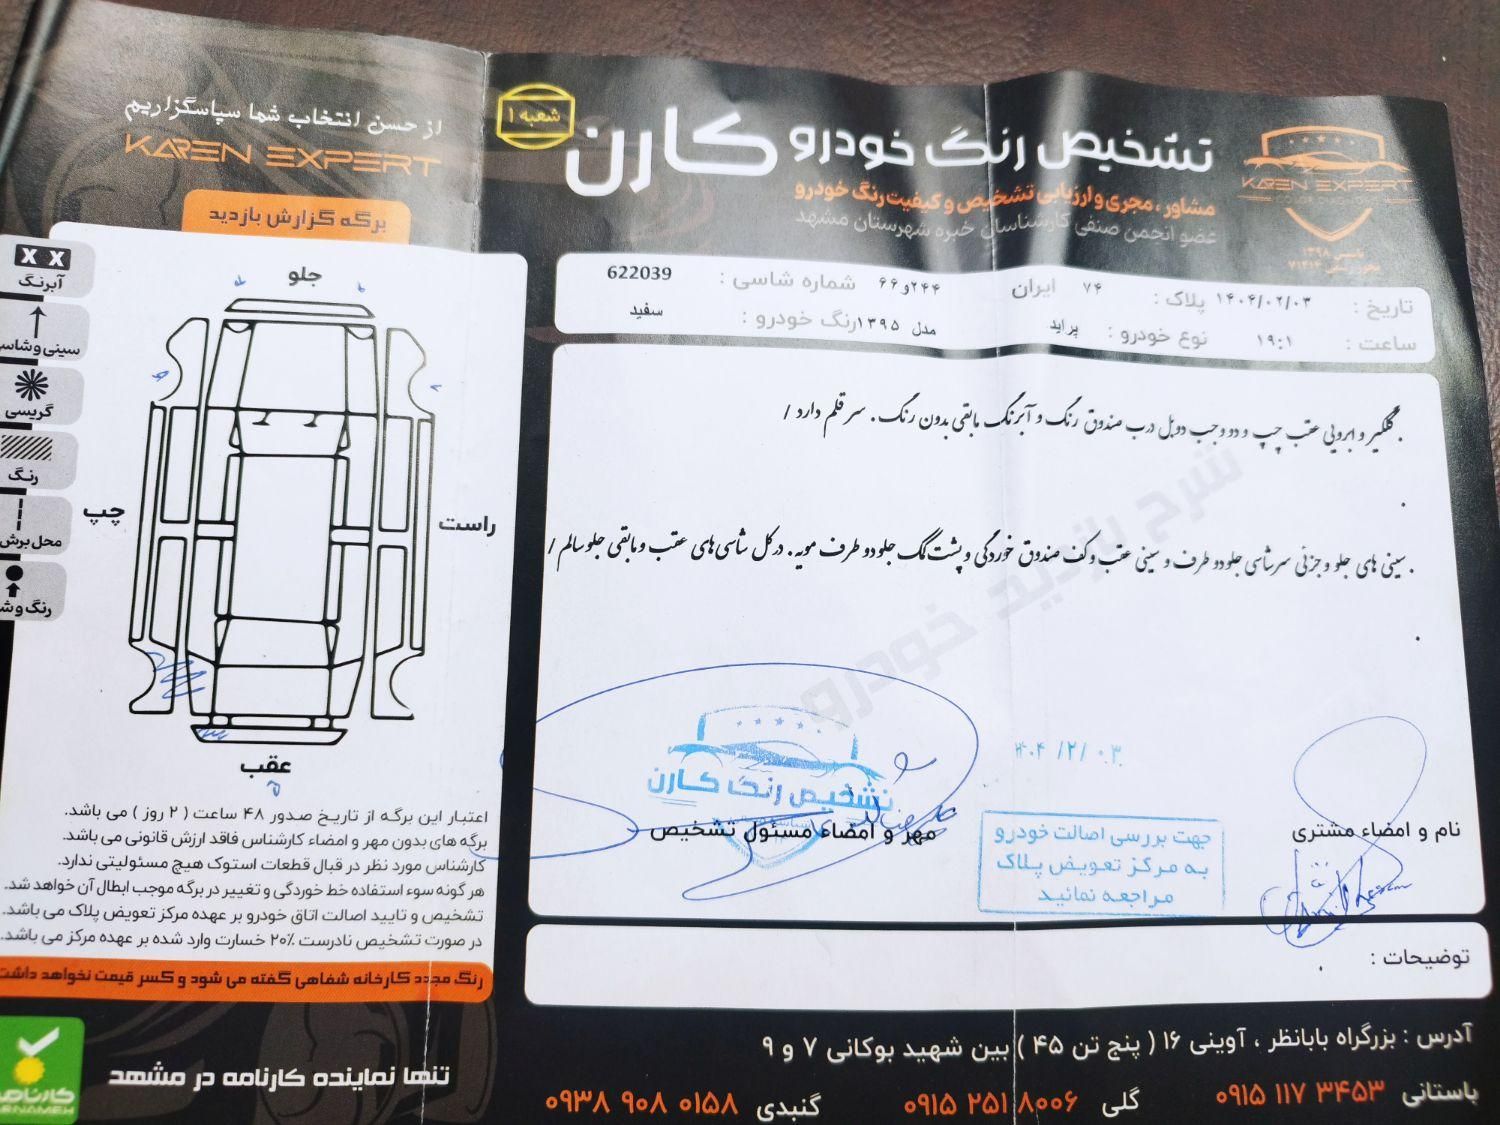 تشخیص رنگ خودرو کارن
شعبه ۱
مشاور، مجری و ارزیابی تشخیص و کیفیت رنگ خودرو
عضو انجمن صنفی کارشناسان خبره شهرستان مشهد
KAREN EXPERT
تاسیس ۱۳۹۸
تاریخ : ۱۴۰۴/۰۲/۰۳ پلاک : ۷۴ ایران ۲۴۴و۶۶ شماره شاسی : 622039
ساعت : ۱۹:۱ نوع خودرو : پراید مدل ۱۳۹۵ رنگ خودرو : سفید
. گلگیر و ابرویی عقب چپ و دو وجب دوبل درب صندوق رنگ و آبرنگ مابقی بدون رنگ . سرقلم دارد /
.
. سینی های جلو و جزئی سرشاسی جلو دو طرف و سینی عقب و کف صندوق خوردگی و پشت گلگ جلو دو طرف مویه . در کل شاسی های عقب و مابقی جلو سالم /
.
شرح بازدید خودرو
۱۴۰۴/۲/۰۳
تشخیص رنگ کارن
مهر و امضاء مسئول تشخیص
جهت بررسی اصالت خودرو
به مرکز تعویض پلاک
مراجعه نمائید
نام و امضاء مشتری
توضیحات :
.
آدرس : بزرگراه بابانظر ، آوینی ۱۶ ( پنج تن ۴۵ ) بین شهید بوکانی ۷ و ۹
باستانی ۰۹۱۵ ۱۱۷ ۳۴۵۳ گلی ۰۹۱۵ ۲۵۱ ۸۰۰۶ گنبدی ۰۹۳۸ ۹۰۸ ۰۱۵۸
از حسن انتخاب شما سپاسگزاریم
KAREN EXPERT
برگه گزارش بازدید
X X
آبرنگ
سینی و شاسی
گریسی
رنگ
محل برش
رنگ و ش
جلو
چپ
راست
عقب
اعتبار این برگه از تاریخ صدور ۴۸ ساعت ( ۲ روز ) می باشد.
برگه های بدون مهر و امضاء کارشناس فاقد ارزش قانونی می باشد.
کارشناس مورد نظر در قبال قطعات استوک هیچ مسئولیتی ندارد.
هر گونه سوء استفاده خط خوردگی و تغییر در برگه موجب ابطال آن خواهد شد.
تشخیص و تایید اصالت اتاق خودرو بر عهده مرکز تعویض پلاک می باشد.
در صورت تشخیص نادرست ۲۰٪ خسارت وارد شده بر عهده مرکز می باشد.
رنگ مجدد کارخانه شفاهی گفته می شود و کسر قیمت نخواهد داشت
تنها نماینده کارنامه در مشهد
کارنامه